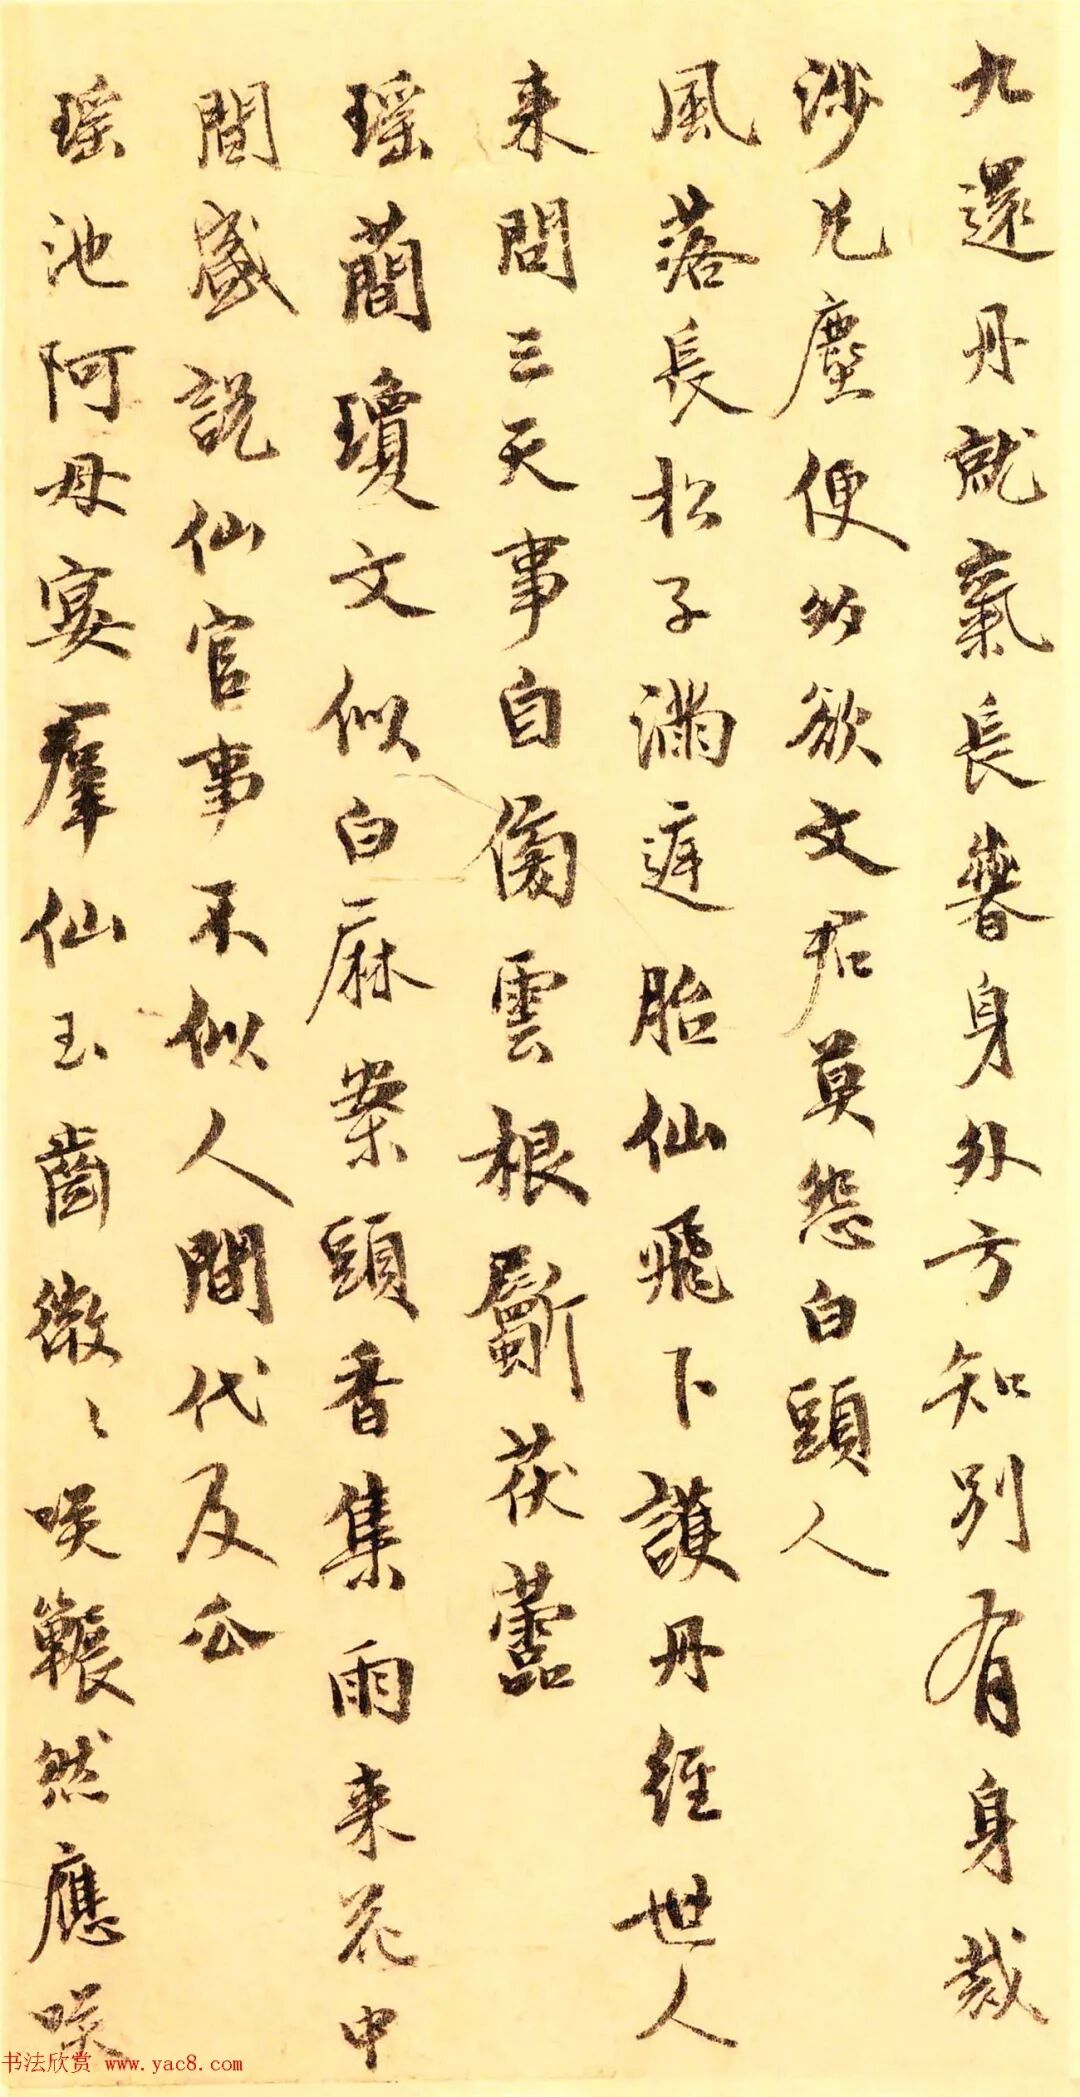 九還丹就氣長春身外方知別有身裁
涉凡塵便多欲文君莫怨白頭人
風落長松子滿庭胎仙飛下護丹經世人
来問三天事自斸雲根斸茯
瑶簡瓊文似白麻案頭香集雨来花中
間盛說仙官事不似人間代及瓜
瑶池阿母宴羣仙玉齒微〻咲囅然應咲
书法欣赏 www.yac8.com